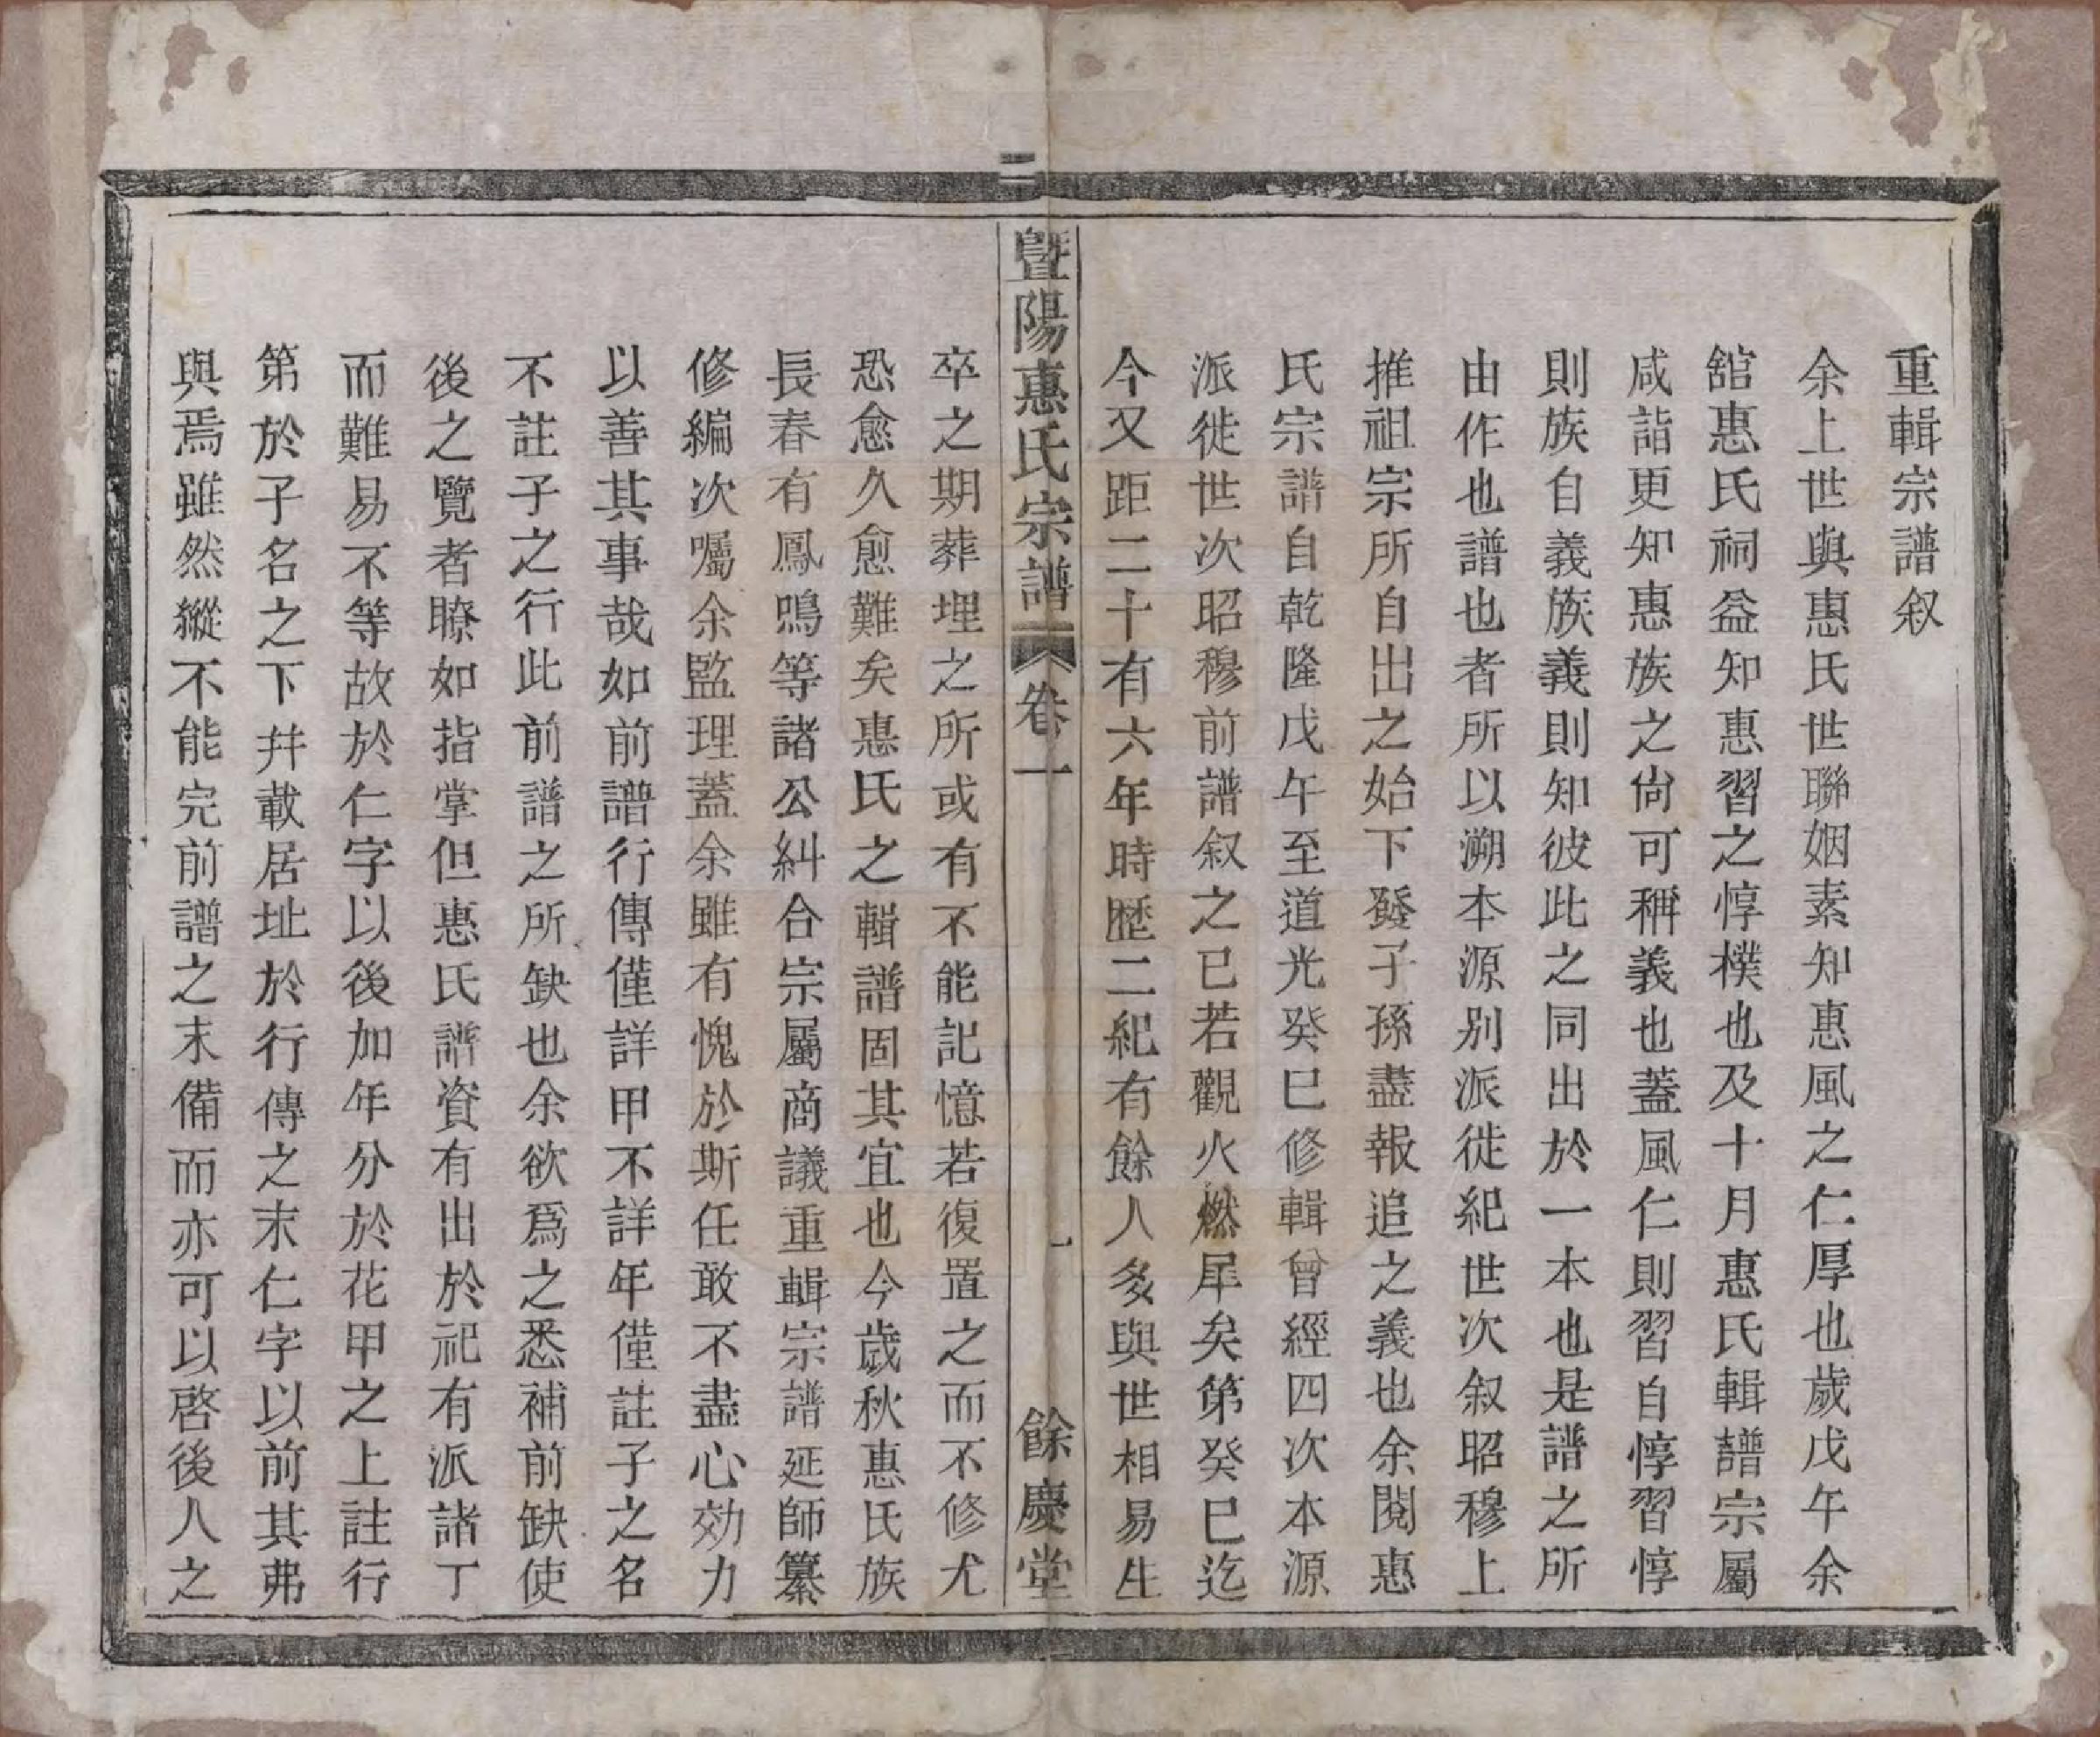 重輯宗譜叙
余上世與惠氏世聯姻素知惠風之仁厚也歲戊午余
舘惠氏祠益知惠習之惇樸也及十月惠氏輯譜宗屬
咸詣更知惠族之尙可稱義也蓋風仁則習自惇習惇
則族自義族義則知彼此之同出於一本也是譜之所
由作也譜也者所以溯本源别派徙紀世次叙昭穆上
推祖宗所自出之始下發子孫盡報追之義也余閱惠
氏宗譜自乾隆戊午至道光癸巳修輯曾經四次本源
派徙世次昭穆前譜叙之已若觀火燃犀矣第癸巳迄
今又距二十有六年時歴二紀有餘人多與世相易生
暨陽惠氏宗譜 卷一 一 餘慶堂
卒之期葬埋之所或有不能記憶若復置之而不修尤
恐愈久愈難矣惠氏之輯譜固其宜也今歲秋惠氏族
長春有鳳鳴等諸公糾合宗屬商議重輯宗譜延師纂
修編次囑余監理蓋余雖有愧於斯任敢不盡心効力
以善其事哉如前譜行傳僅詳甲不詳年僅註子之名
不註子之行此前譜之所缺也余欲爲之悉補前缺使
後之覽者瞭如指掌但惠氏譜資有出於祀有派諸丁
而難易不等故於仁字以後加年分於花甲之上註行
第於子名之下并載居址於行傳之末仁字以前其弗
與焉雖然縱不能完前譜之末備而亦可以啓後人之